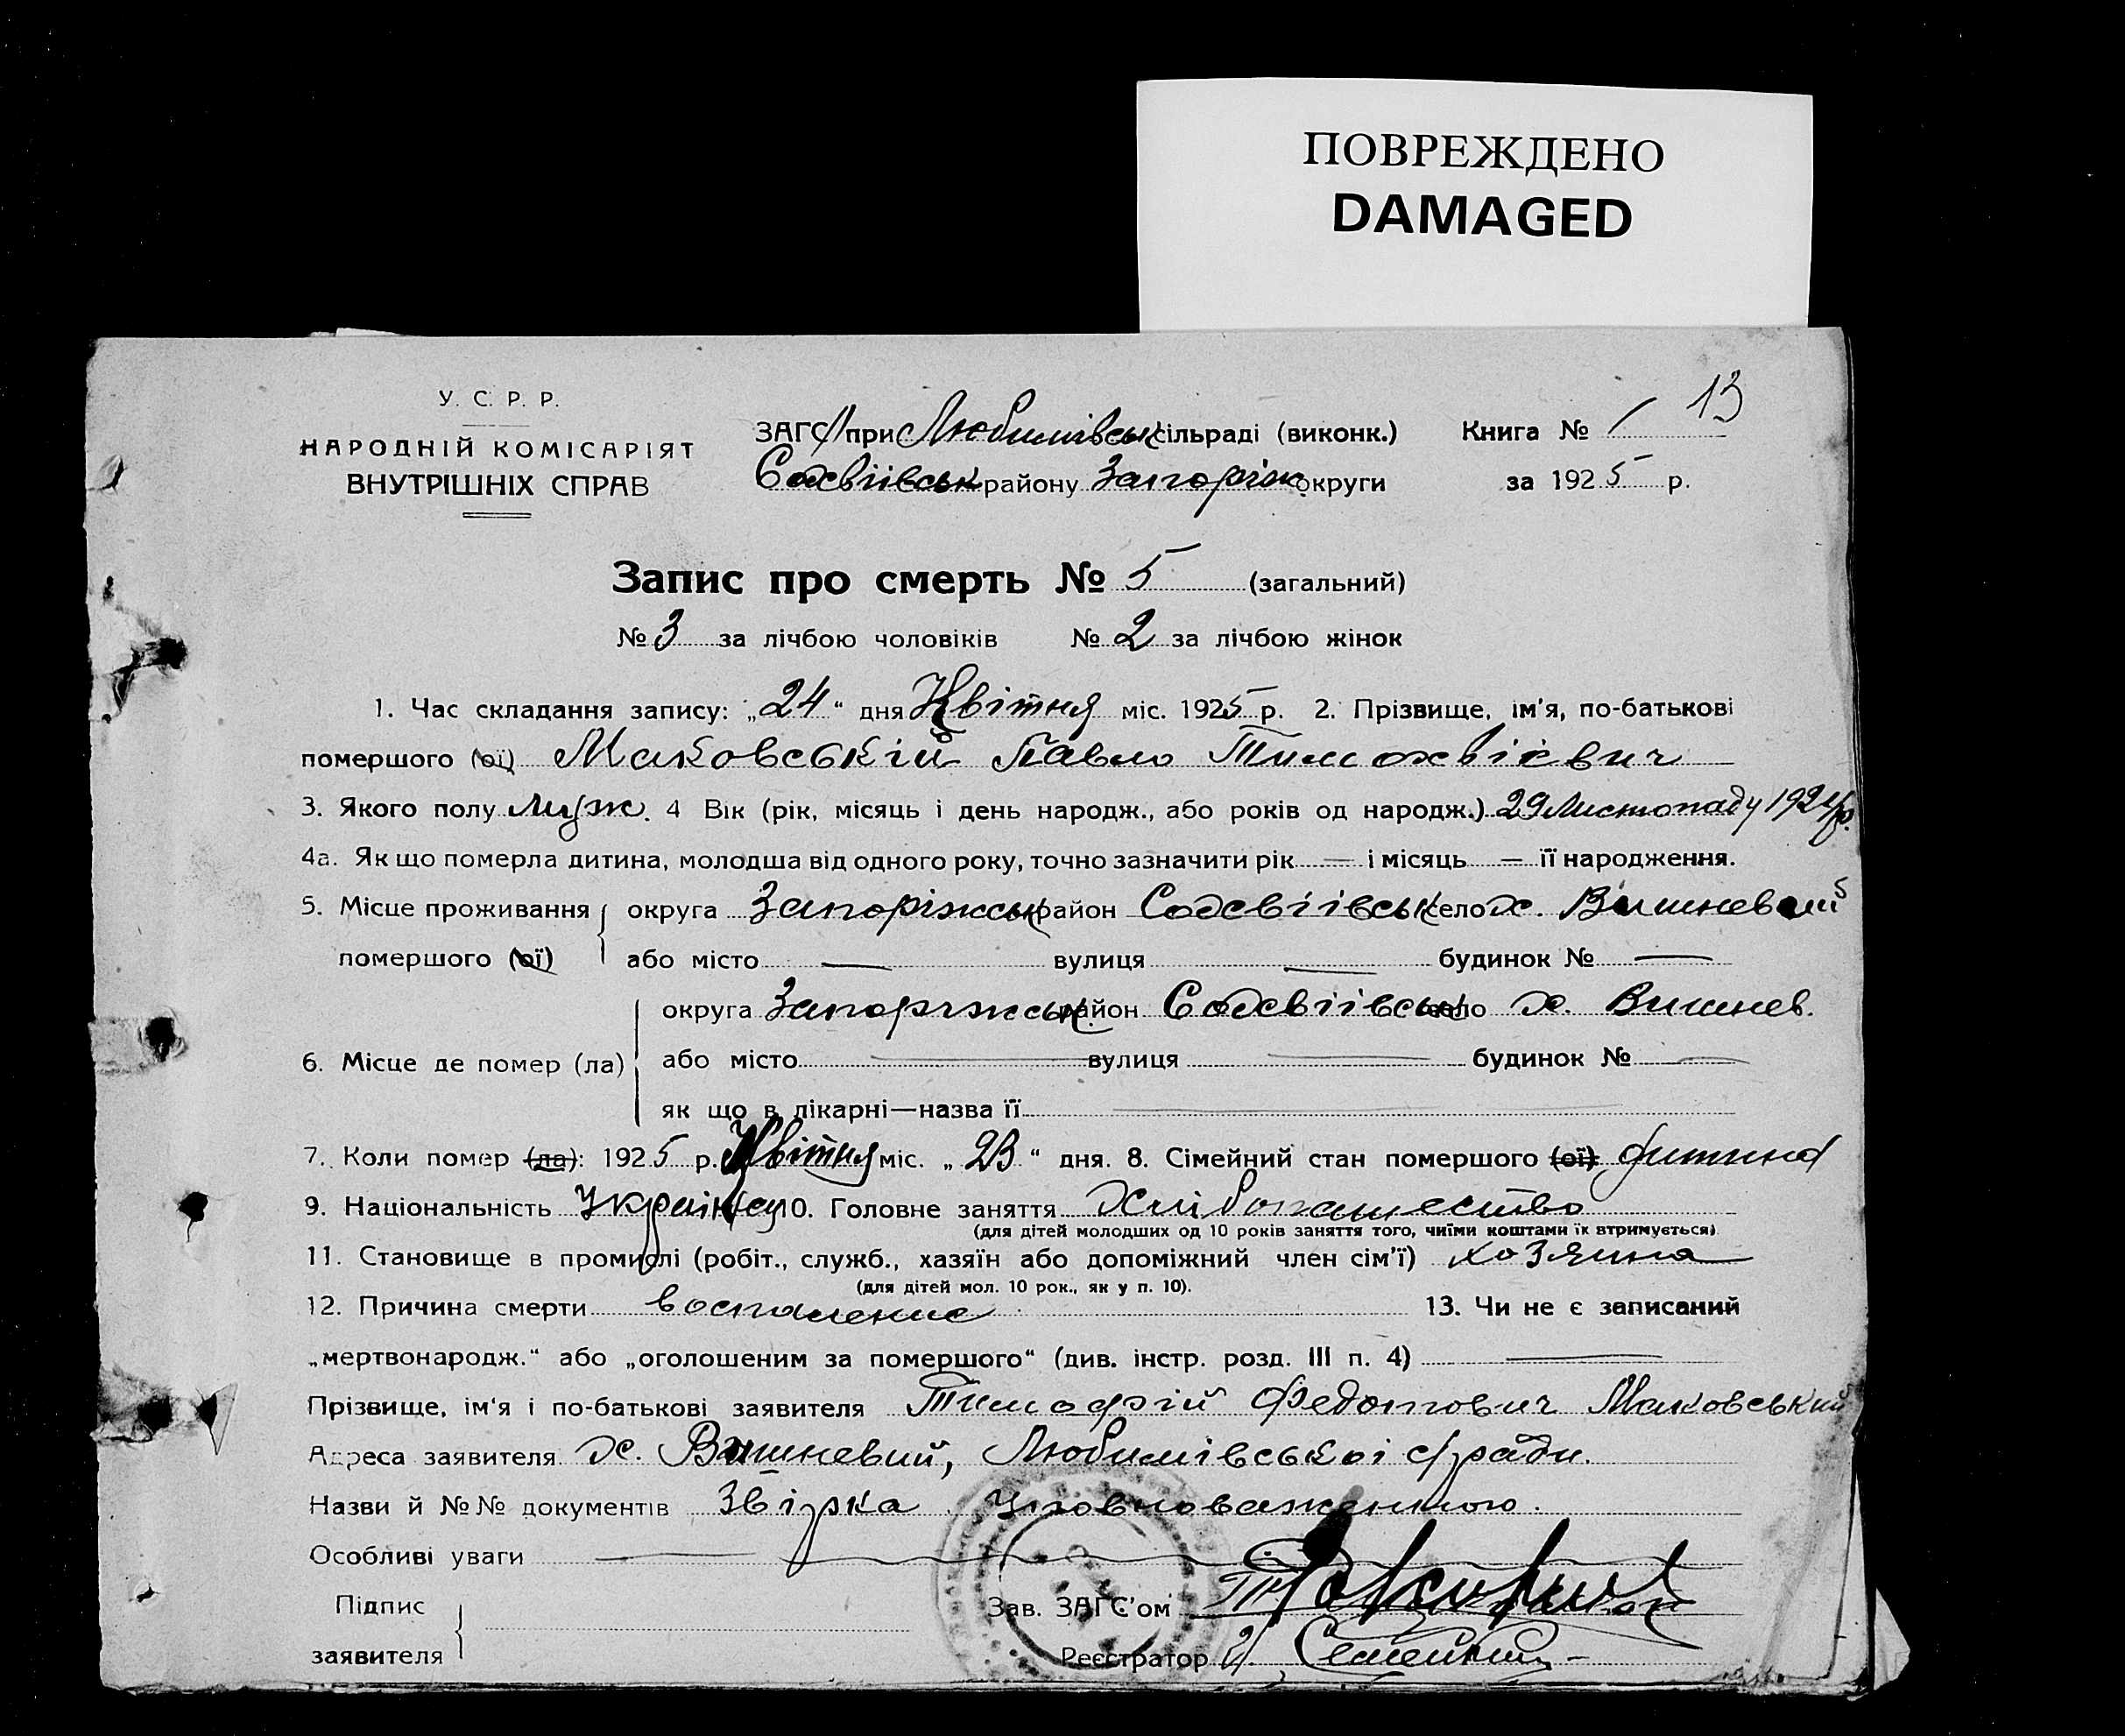 ПОВРЕЖДЕНО
DAMAGED
13
У. С. Р. Р.
НАРОДНІЙ КОМІСАРІЯТ
ВНУТРІШНІХ СПРАВ
ЗАГС при Любимівськ сільраді (виконк.) Книга № 1
Софіївськ району Запоріж округи за 1925 р.
Запис про смерть № 5 (загальний)
№ 3 за лічбою чоловіків № 2 за лічбою жінок
1. Час складання запису: „24“ дня Квітня міс. 1925 р. 2. Прізвище, ім'я, по-батькові
помершого (ої) Маковській Павло Тимохвієвич
3. Якого полу муж. 4 Вік (рік, місяць і день народж., або років од народж.) 29 Листопаду 1924 р.
4а. Як що померла дитина, молодша від одного року, точно зазначити рік — і місяць — її народження.
5. Місце проживання округа Запоріжськ район Содєвіївськ село х. Вишневий
помершого (ої) або місто — вулиця — будинок № —
округа Запоріжськ район Содєвіївськ село х. Вишнев.
6. Місце де помер (ла) або місто — вулиця — будинок № —
як що в лікарні—назва її —
7. Коли помер (ла): 1925 р. Квітня міс. „23“ дня. 8. Сімейний стан помершого (ої) дитина
9. Національність Україн 10. Головне заняття Хлібопашество
(для дітей молодших од 10 років заняття того, чиїми коштами їх втримується)
11. Становище в промислі (робіт., служб., хазяїн або допоміжний член сім'ї) хозяина
(для дітей мол. 10 рок., як у п. 10).
12. Причина смерти воспаление 13. Чи не є записаний
„мертвонародж.“ або „оголошеним за помершого“ (див. інстр. розд. III п. 4) —
Прізвище, ім'я і по-батькові заявителя Тимофій Федотович Маковський
Адреса заявителя х. Вишневий, Любимівської с/ради.
Назви й №№ документів Звірка уповноваженного.
Особливі уваги —
Підпис Зав. ЗАГС'ом
заявителя Реєстратор